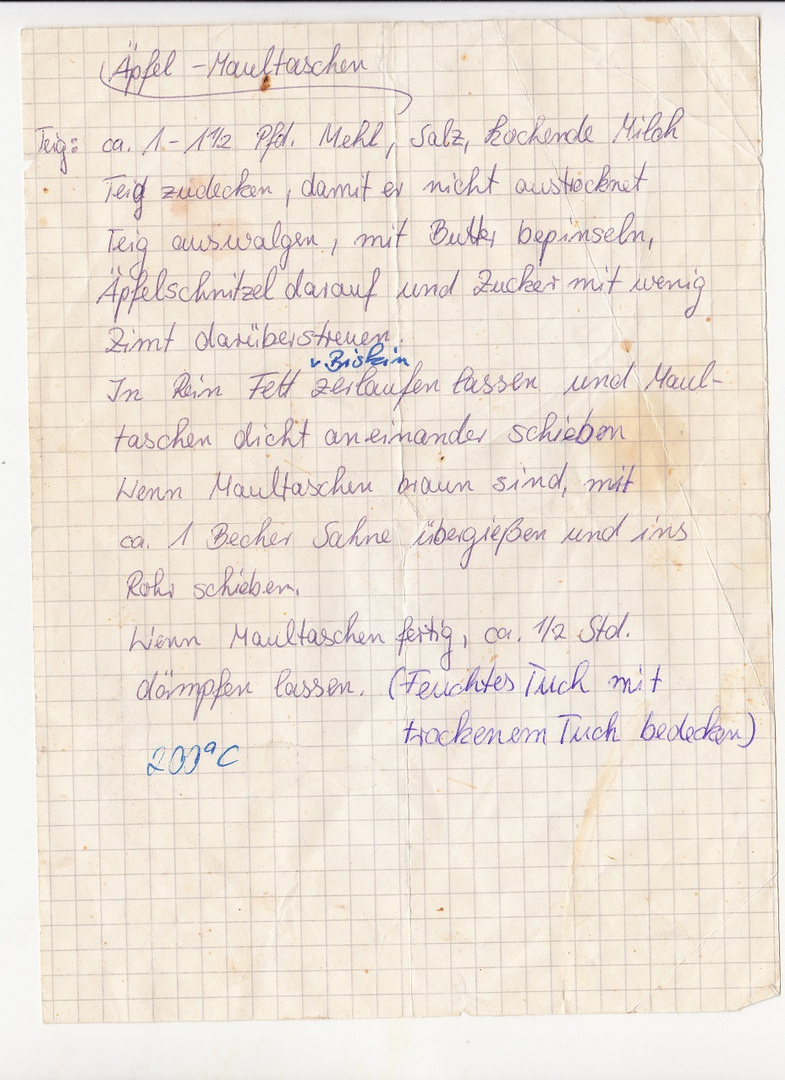 Äpfel - Maultaschen
Teig: ca. 1 - 1 1/2 Pfd. Mehl, Salz, kochende Milch
Teig zudecken, damit er nicht austrocknet
Teig auswalgen, mit Butter bepinseln,
Äpfelschnitzel darauf und Zucker mit wenig
Zimt darüberstreuen.
v. Biskin
In Rein Fett zerlaufen lassen und Maul-
taschen dicht aneinander schieben
Wenn Maultaschen braun sind, mit
ca. 1 Becher Sahne übergießen und ins
Rohr schieben.
Wenn Maultaschen fertig, ca. 1/2 Std.
dämpfen lassen. (Feuchtes Tuch mit
trockenem Tuch bedecken)
200°C